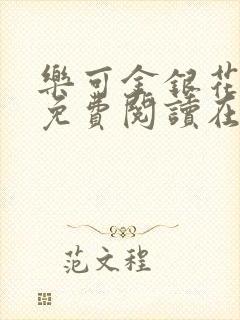 樂可金銀花
免費閱讀在
范文程